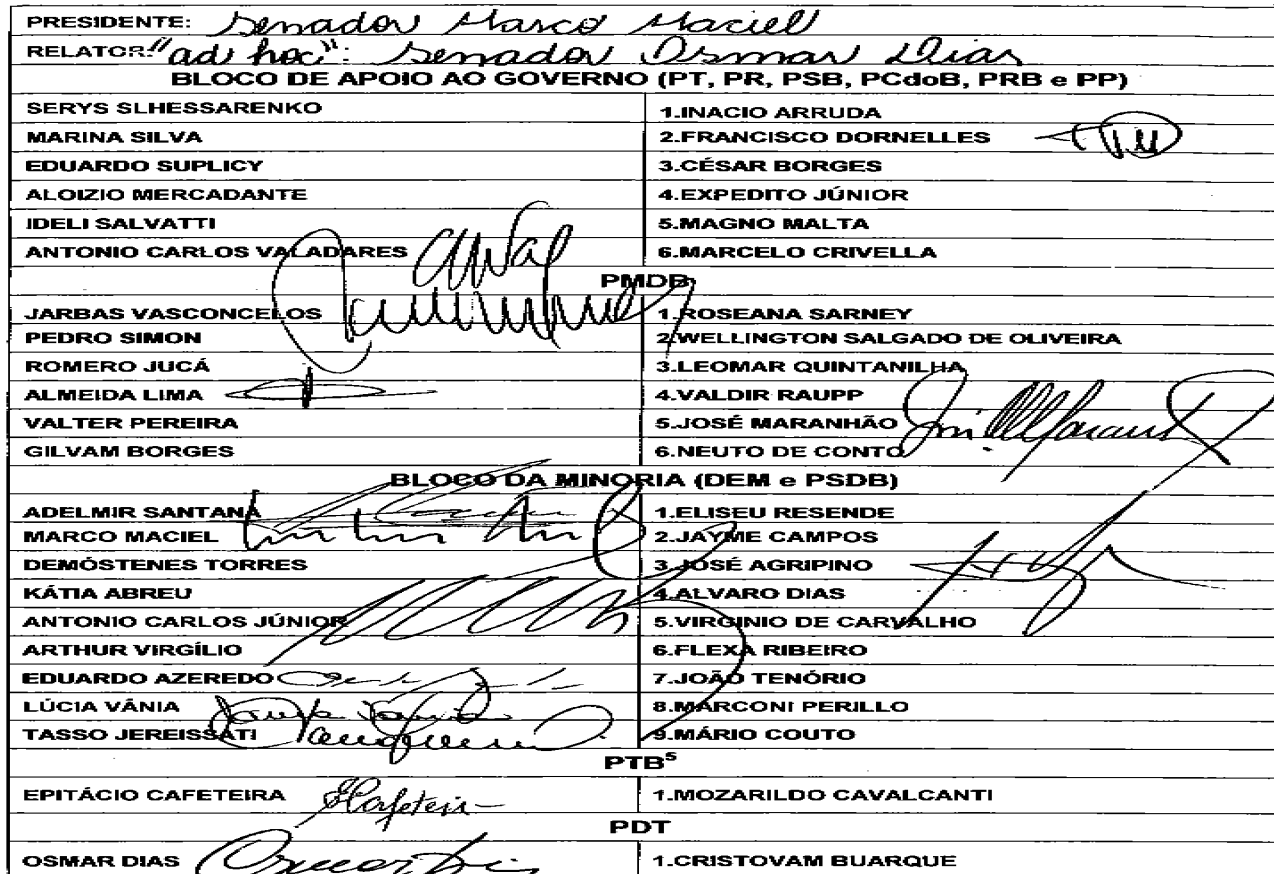 PRESIDENTE: Senador Marco Maciel
RELATOR: "ad hoc": Senador Osmar Dias
BLOCO DE APOIO AO GOVERNO (PT, PR, PSB, PCdoB, PRB e PP)
SERYS SLHESSARENKO 1.INACIO ARRUDA
MARINA SILVA 2.FRANCISCO DORNELLES
EDUARDO SUPLICY 3.CÉSAR BORGES
ALOIZIO MERCADANTE 4.EXPEDITO JÚNIOR
IDELI SALVATTI 5.MAGNO MALTA
ANTONIO CARLOS VALADARES 6.MARCELO CRIVELLA
PMDB
JARBAS VASCONCELOS 1.ROSEANA SARNEY
PEDRO SIMON 2.WELLINGTON SALGADO DE OLIVEIRA
ROMERO JUCÁ 3.LEOMAR QUINTANILHA
ALMEIDA LIMA 4.VALDIR RAUPP
VALTER PEREIRA 5.JOSÉ MARANHÃO
GILVAM BORGES 6.NEUTO DE CONTO
BLOCO DA MINORIA (DEM e PSDB)
ADELMIR SANTANA 1.ELISEU RESENDE
MARCO MACIEL 2.JAYME CAMPOS
DEMÓSTENES TORRES 3.JOSÉ AGRIPINO
KÁTIA ABREU 4.ALVARO DIAS
ANTONIO CARLOS JÚNIOR 5.VIRGINIO DE CARVALHO
ARTHUR VIRGÍLIO 6.FLEXA RIBEIRO
EDUARDO AZEREDO 7.JOÃO TENÓRIO
LÚCIA VÂNIA 8.MARCONI PERILLO
TASSO JEREISSATI 9.MÁRIO COUTO
PTB⁵
EPITÁCIO CAFETEIRA 1.MOZARILDO CAVALCANTI
PDT
OSMAR DIAS 1.CRISTOVAM BUARQUE